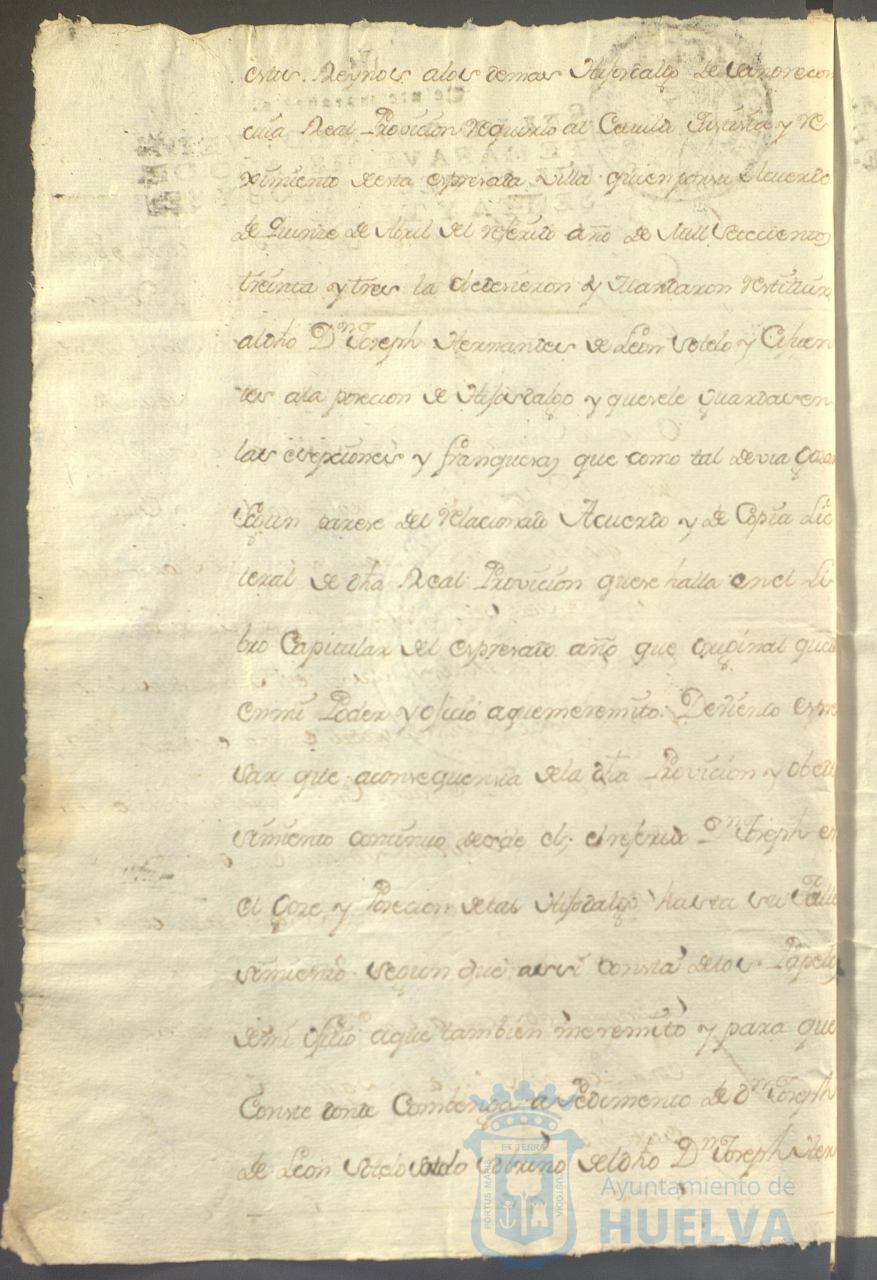 estos Reynos alos demas Hijosdalgo de sangre con
cuia Real Provicion Requirio al Cavildo Justicia y Re
ximiento desta expresada villa quien por su Acuerdo
de Quinze de Abril del referido año de Mill Setecientos
treinta y tres la obedesieron y Mandaron Restituir
aldho Dn Joseph Hernandes de Leon Sotelo y Cifuen
tes ala posecion de Hijosdalgo y que sele Guardasen
las esepciones y franquesas que como tal devia Gozar
Segun parese del relacionado Acuerdo y de Copia Lit
teral de dha Real Provicion que se halla en el Li
bro Capitular del expresado año que original queda
en mi Poder y ofisio a que me remito. Deviendo expre
sar que a consequensia dela dha Provicion y obede
simiento continuo desde el, el referido Dn Joseph en
el Goze, y Posecion de tal Hijodalgo hasta su Falle
simiento segun que assi consta delos Papeles
de mi ofisio a que tambien me remito y para que
Conste donde Combenga a Pedimento de Dn Joseph
de Leon Sotelo Sobrino deldho Dn Joseph Her
PORTUS MARIS
ET TERRAE
CUSTODIA
Ayuntamiento de
HUELVA